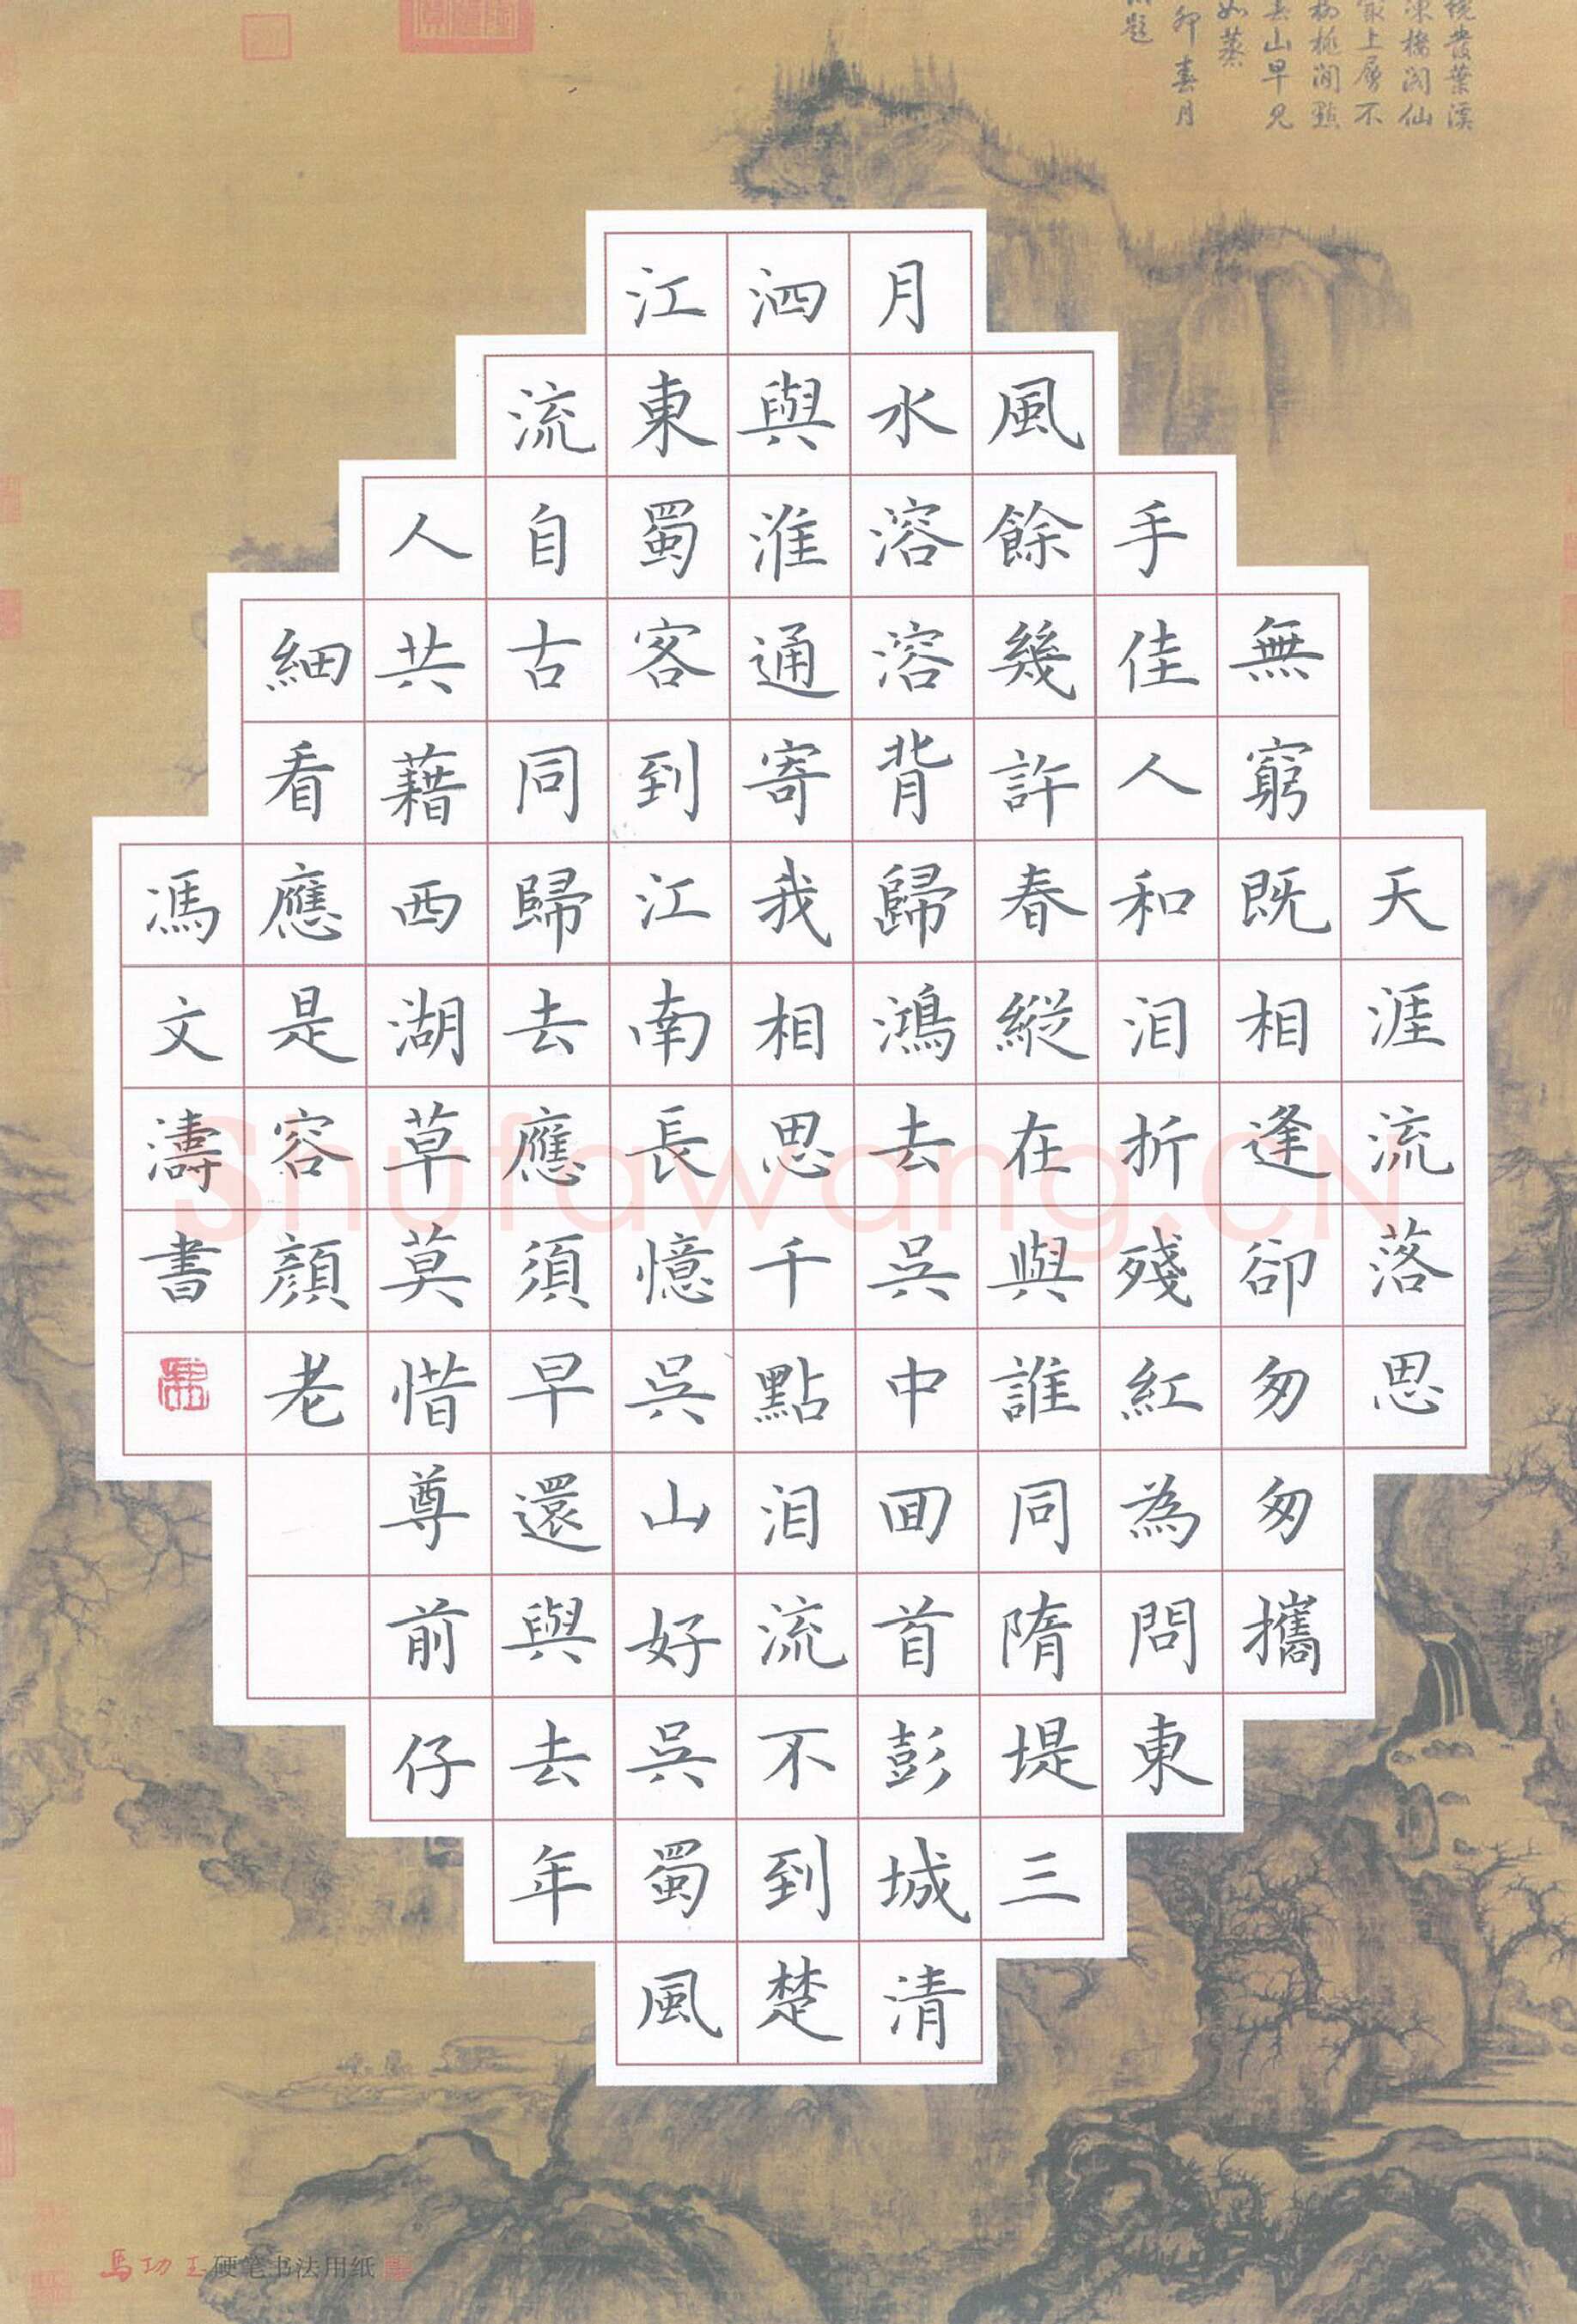 發葉溪
凍樓閣仙
最上層不
柳桃閒點
山早見
如蒸
卯春月
題
天涯流落思
無窮既相逢卻匆匆攜
手佳人和泪折殘紅為問東
風餘幾許春縱在與誰同隋堤三
月水溶溶背歸鴻去吳中囬首彭城清
泗與淮通寄我相思千點泪流不到楚
江東蜀客到江南長憶吳山好吳蜀風
流自古同歸去應須早還與去年
人共藉西湖草莫惜尊前仔
細看應是容顏老
馮文濤書
Shufawang.CN
硬笔书法用纸